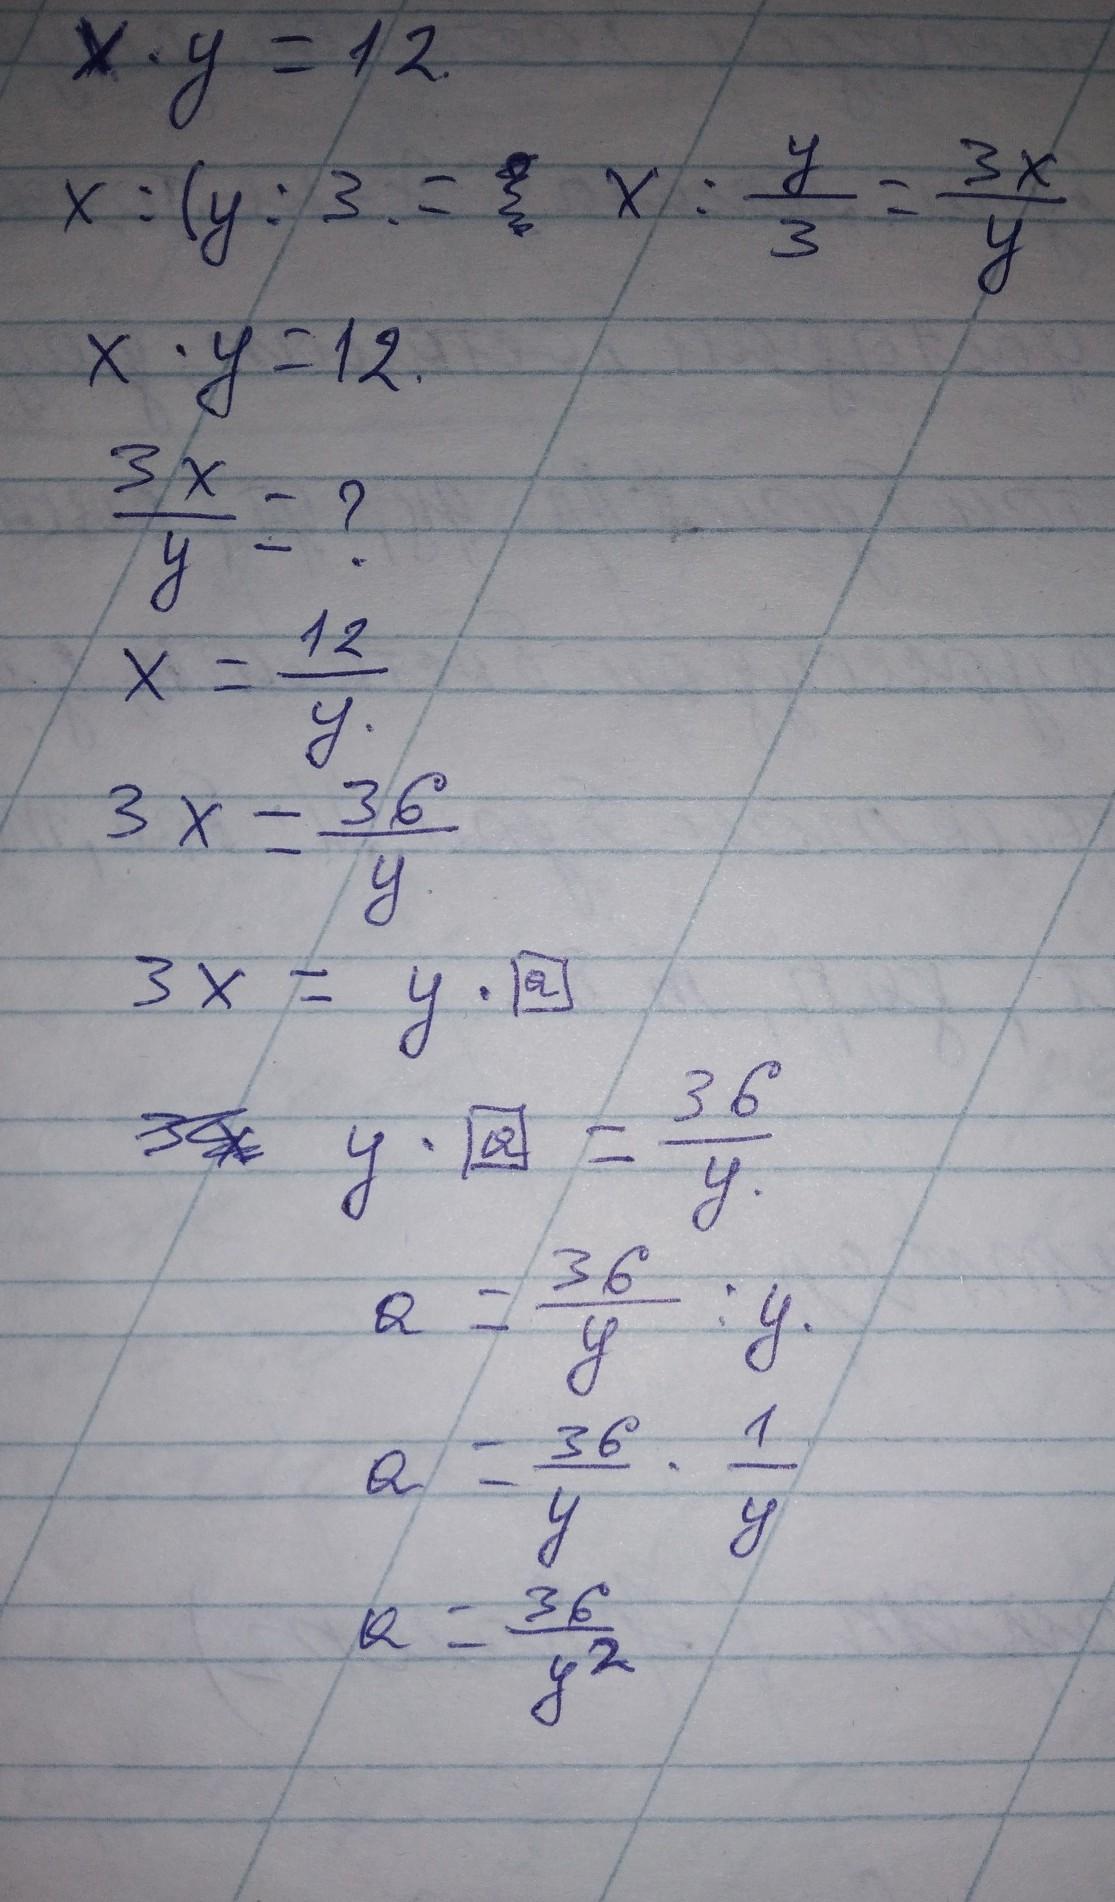 x · y = 12.
x : (y : 3. = x : y/3 = 3x/y
x · y = 12.
3x/y = ?
x = 12/y.
3x = 36/y.
3x = y · a
y · a = 36/y.
a = 36/y : y.
a = 36/y · 1/y
a = 36/y²